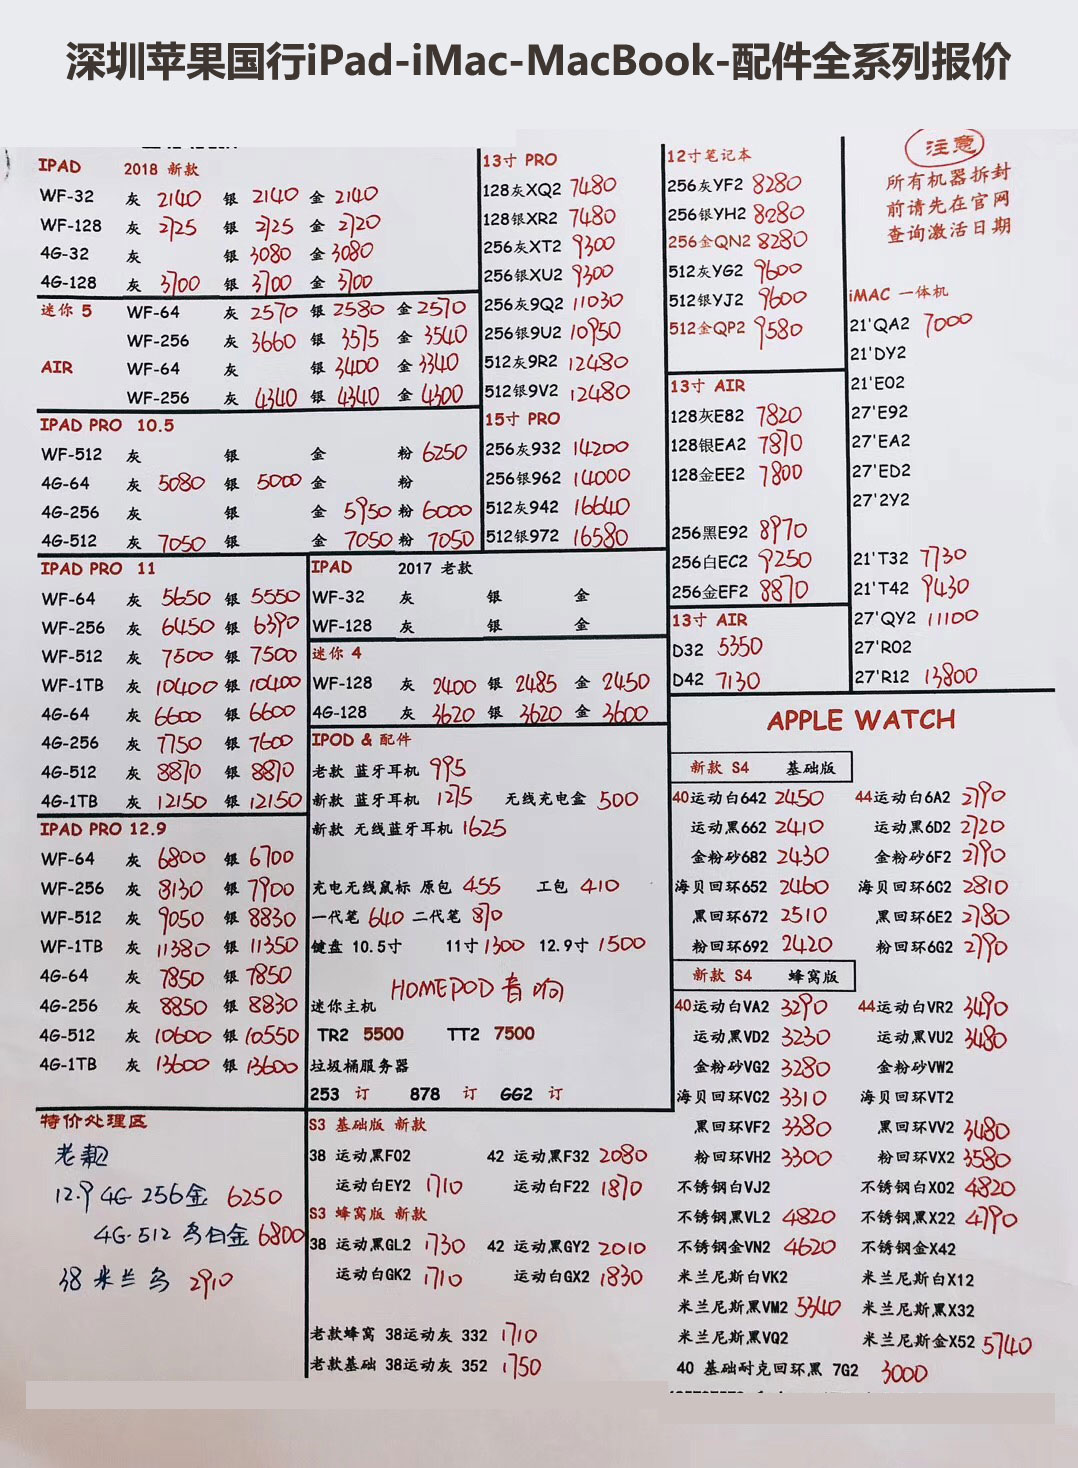 深圳苹果国行iPad-iMac-MacBook-配件全系列报价
IPAD 2018 新款
WF-32 灰 2140 银 2140 金 2140
WF-128 灰 2125 银 2125 金 2120
4G-32 灰 银 3080 金 3080
4G-128 灰 3700 银 3700 金 3700
迷你 5 WF-64 灰 2570 银 2580 金 2570
WF-256 灰 3660 银 3575 金 3540
AIR WF-64 灰 银 3400 金 3340
WF-256 灰 4340 银 4340 金 4300
IPAD PRO 10.5
WF-512 灰 银 金 粉 6250
4G-64 灰 5080 银 5000 金 粉
4G-256 灰 银 金 5950 粉 6000
4G-512 灰 7050 银 金 7050 粉 7050
IPAD PRO 11
WF-64 灰 5650 银 5550
WF-256 灰 6450 银 6390
WF-512 灰 7500 银 7500
WF-1TB 灰 10400 银 10400
4G-64 灰 6600 银 6600
4G-256 灰 7750 银 7600
4G-512 灰 8870 银 8870
4G-1TB 灰 12150 银 12150
IPAD PRO 12.9
WF-64 灰 6800 银 6700
WF-256 灰 8130 银 7900
WF-512 灰 9050 银 8830
WF-1TB 灰 11380 银 11350
4G-64 灰 7850 银 7850
4G-256 灰 8850 银 8830
4G-512 灰 10600 银 10550
4G-1TB 灰 13600 银 13600
特价处理区
老款
12.9 4G 256金 6250
4G-512 乌白金 6800
38 米兰乌 2910
13寸 PRO
128灰XQ2 7480
128银XR2 7480
256灰XT2 9300
256银XU2 9300
256灰9Q2 11030
256银9U2 10950
512灰9R2 12480
512银9V2 12480
15寸 PRO
256灰932 14200
256银962 14000
512灰942 16640
512银972 16580
IPAD 2017 老款
WF-32 灰 银 金
WF-128 灰 银 金
迷你 4
WF-128 灰 2400 银 2485 金 2450
4G-128 灰 3620 银 3620 金 3600
IPOD & 配件
老款 蓝牙耳机 995
新款 蓝牙耳机 1275 无线充电盒 500
新款 无线蓝牙耳机 1625
充电无线鼠标 原包 455 工包 410
一代笔 640 二代笔 870
键盘 10.5寸 11寸 1300 12.9寸 1500
HOMEPOD 音响
迷你主机
TR2 5500 TT2 7500
垃圾桶服务器
253 订 878 订 GG2 订
S3 基础版 新款
38 运动黑F02 42 运动黑F32 2080
运动白EY2 1710 运动白F22 1870
S3 蜂窝版 新款
38 运动黑GL2 1730 42 运动黑GY2 2010
运动白GK2 1710 运动白GX2 1830
老款蜂窝 38运动灰 332 1710
老款基础 38运动灰 352 1750
12寸笔记本
256灰YF2 8280
256银YH2 8280
256金QN2 8280
512灰YG2 9600
512银YJ2 9600
512金QP2 9580
13寸 AIR
128灰E82 7820
128银EA2 7870
128金EE2 7800
256黑E92 8970
256白EC2 9250
256金EF2 8870
13寸 AIR
D32 5350
D42 7130
注意
所有机器拆封
前请先在官网
查询激活日期
iMAC 一体机
21'QA2 7000
21'DY2
21'E02
27'E92
27'EA2
27'ED2
27'2Y2
21'T32 7730
21'T42 9430
27'QY2 11100
27'R02
27'R12 13800
APPLE WATCH
新款 S4 基础版
40运动白642 2450 44运动白6A2 2790
运动黑662 2410 运动黑6D2 2720
金粉砂682 2430 金粉砂6F2 2790
海贝回环652 2460 海贝回环6C2 2810
黑回环672 2510 黑回环6E2 2780
粉回环692 2420 粉回环6G2 2790
新款 S4 蜂窝版
40运动白VA2 3290 44运动白VR2 3490
运动黑VD2 3230 运动黑VU2 3480
金粉砂VG2 3280 金粉砂VW2
海贝回环VC2 3310 海贝回环VT2
黑回环VF2 3380 黑回环VV2 3480
粉回环VH2 3300 粉回环VX2 3580
不锈钢白VJ2 不锈钢白X02 4820
不锈钢黑VL2 4820 不锈钢黑X22 4790
不锈钢金VN2 4620 不锈钢金X42
米兰尼斯白VK2 米兰尼斯白X12
米兰尼斯黑VM2 5340 米兰尼斯黑X32
米兰尼斯黑VQ2 米兰尼斯金X52 5740
40 基础耐克回环黑 7G2 3000